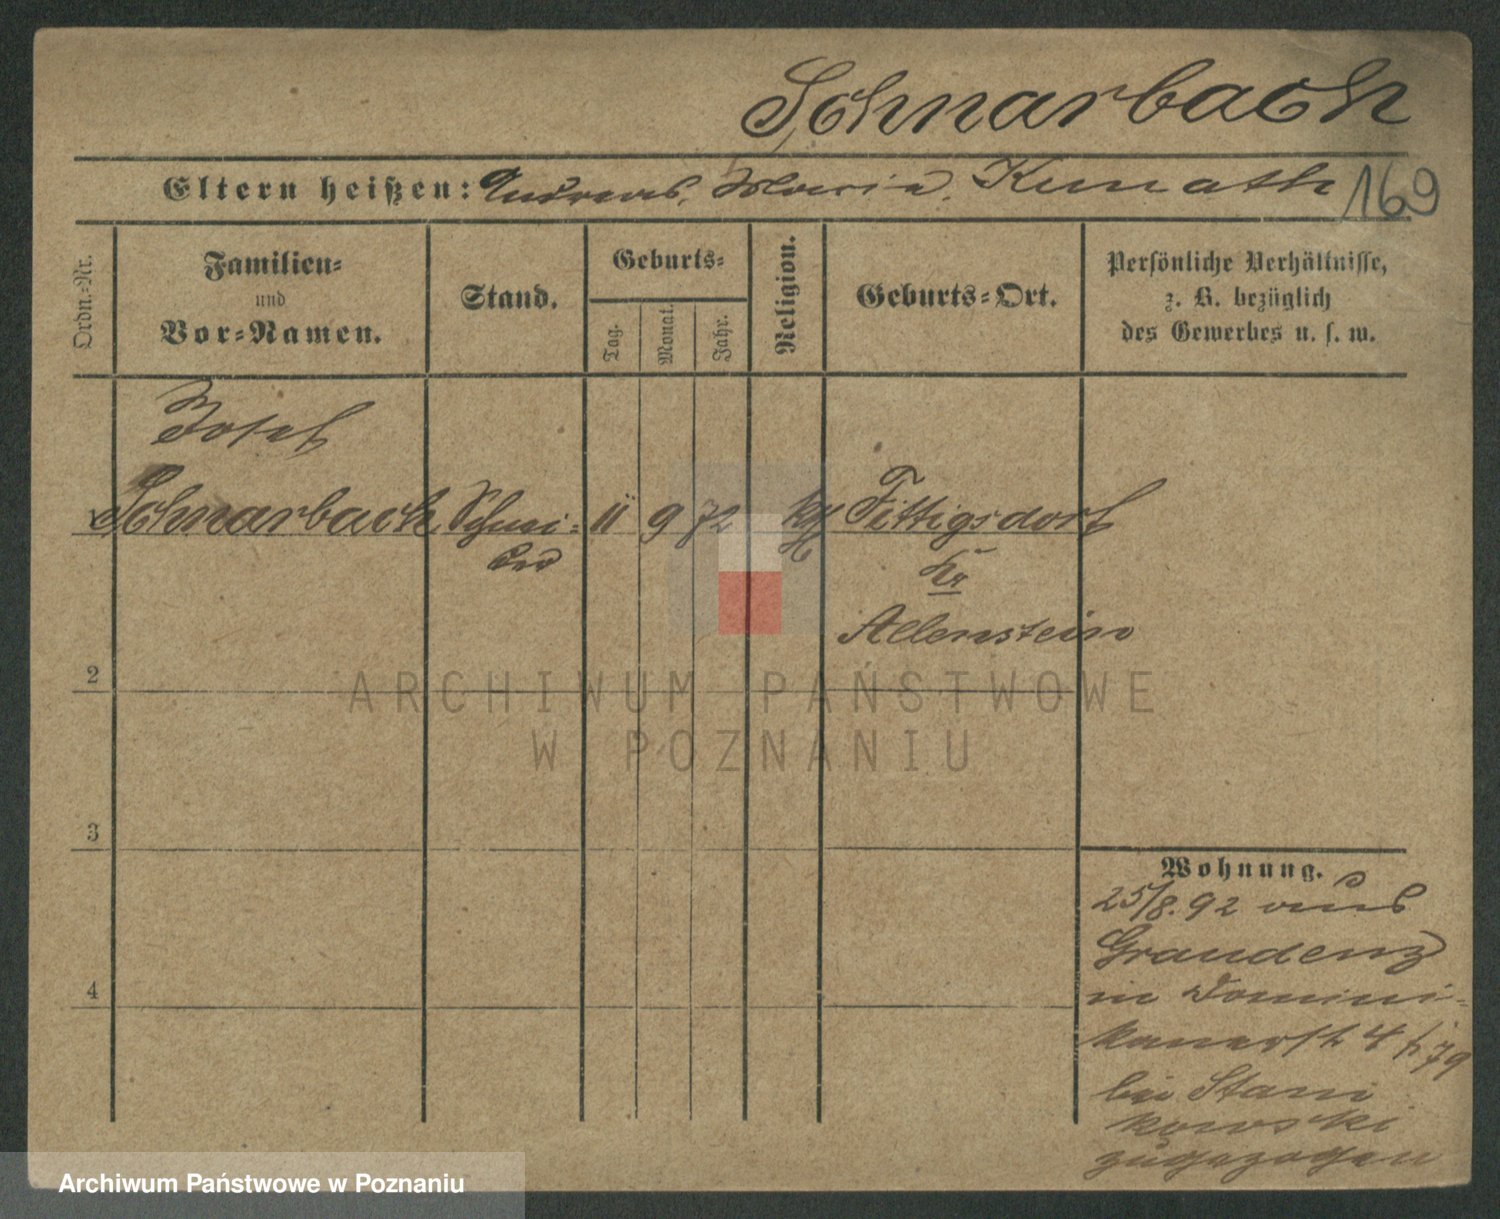 Schnarbach
Eltern heißen: Andreas, Maria, Kunath
169
Ordn.-Nr.
Familien-
und
Vor-Namen.
Stand.
Geburts-
Tag.
Monat.
Jahr.
Religion.
Geburts-Ort.
Persönliche Verhältnisse,
z. B. bezüglich
des Gewerbes u. s. w.
Josef
1 Schnarbach Schnei- 11 9 72 kth Fittigsdorf
der
Kr
Allenstein
2
3
4
Wohnung.
25/8. 92 aus
Graudenz
in Domini-
kanerstr 4
bei Stani
kowski
zugezogen
ARCHIWUM PAŃSTWOWE
W POZNANIU
Archiwum Państwowe w Poznaniu